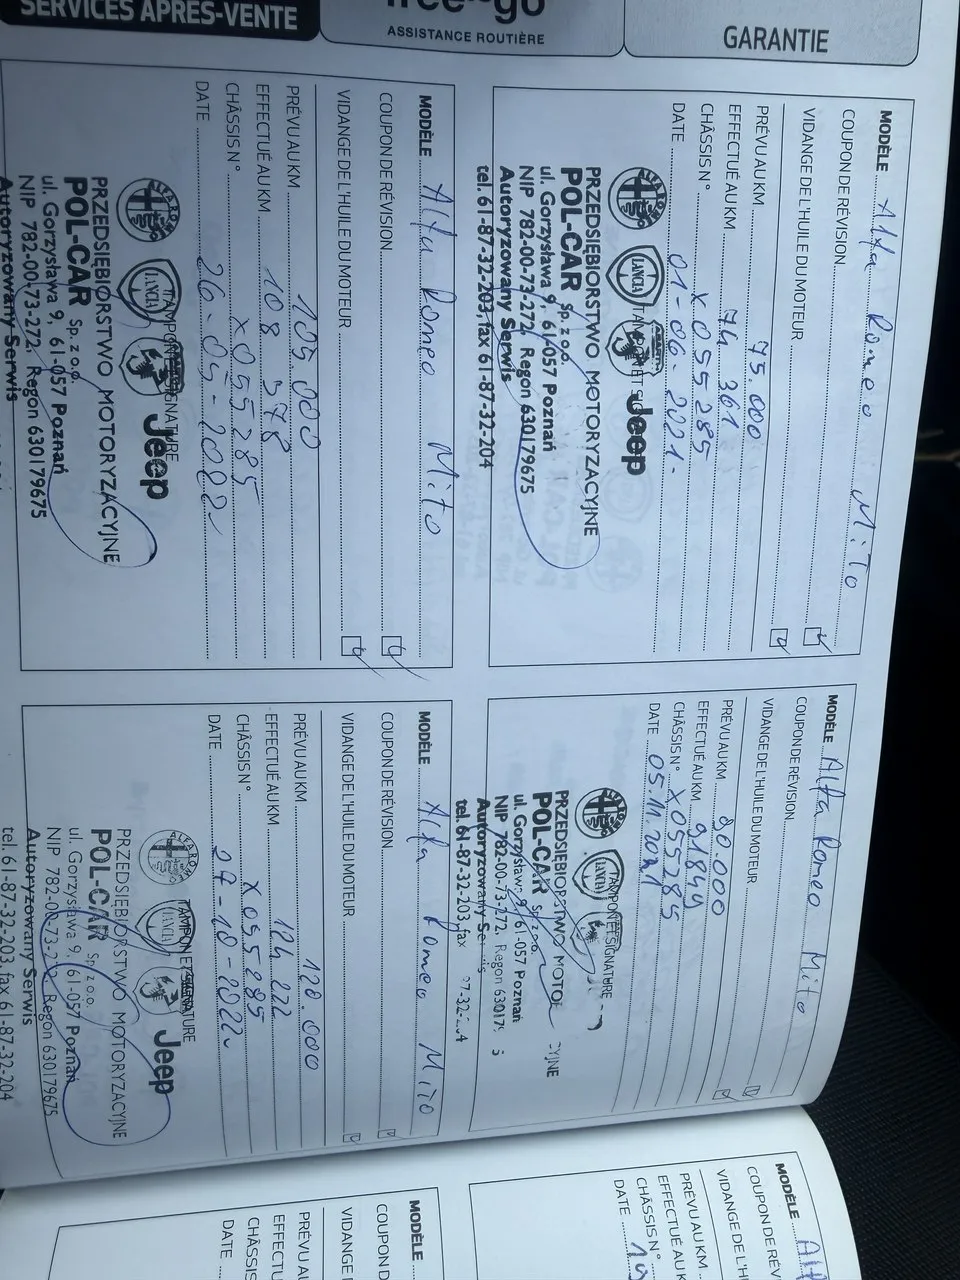 SERVICES APRÈS-VENTE
ASSISTANCE ROUTIÈRE
GARANTIE
MODÈLE Alfa Romeo MiTo
COUPON DE RÉVISION
VIDANGE DE L'HUILE DU MOTEUR
PRÉVU AU KM 75.000
EFFECTUÉ AU KM 74 361
CHÂSSIS N° X055285
DATE 01-06-2021-
TAMPON ET SIGNATURE
LANCIA
Jeep
PRZEDSIĘBIORSTWO MOTORYZACYJNE
POL-CAR Sp. z o.o.
ul. Gorzysława 9, 61-057 Poznań
NIP 782-00-73-272, Regon 630179675
Autoryzowany Serwis
tel. 61-87-32-203, fax 61-87-32-204
MODÈLE Alfa Romeo Mito
COUPON DE RÉVISION
VIDANGE DE L'HUILE DU MOTEUR
PRÉVU AU KM 90.000
EFFECTUÉ AU KM 91844
CHÂSSIS N° X055285
DATE 05.11.2021
TAMPON ET SIGNATURE
LANCIA
PRZEDSIĘBIORSTWO
POL-CAR Sp. z o.o.
ul. Gorzysława 9, 61-057 Poznań
NIP 782-00-73-272, Regon
Autoryzowany
tel. 61-87-32-203, fax
MODÈLE Alfa Romeo Mito
COUPON DE RÉVISION
VIDANGE DE L'HUILE DU MOTEUR
PRÉVU AU KM 105.000
EFFECTUÉ AU KM 108 378
CHÂSSIS N° X055285
DATE 26-05-2022
TAMPON ET SIGNATURE
LANCIA
Jeep
PRZEDSIĘBIORSTWO MOTORYZACYJNE
POL-CAR Sp. z o.o.
ul. Gorzysława 9, 61-057 Poznań
NIP 782-00-73-272, Regon 630179675
Autoryzowany Serwis
MODÈLE Alfa Romeo Mito
COUPON DE RÉVISION
VIDANGE DE L'HUILE DU MOTEUR
PRÉVU AU KM 120.000
EFFECTUÉ AU KM 124 222
CHÂSSIS N° X055285
DATE 27-10-2022
TAMPON ET SIGNATURE
LANCIA
Jeep
PRZEDSIĘBIORSTWO MOTORYZACYJNE
POL-CAR Sp. z o.o.
ul. Gorzysława 9, 61-057 Poznań
NIP 782-00-73-272, Regon 630179675
Autoryzowany Serwis
tel. 61-87-32-203, fax 61-87-32-204
MODÈLE
VIDANGE DE L'H
PRÉVU AU KM
EFFECTUÉ AU K
CHÂSSIS N°
DATE
MODÈLE
COUPON D
VIDANGE DE
PRÉVU AU
EFFECTU
CHÂSSIS
DATE